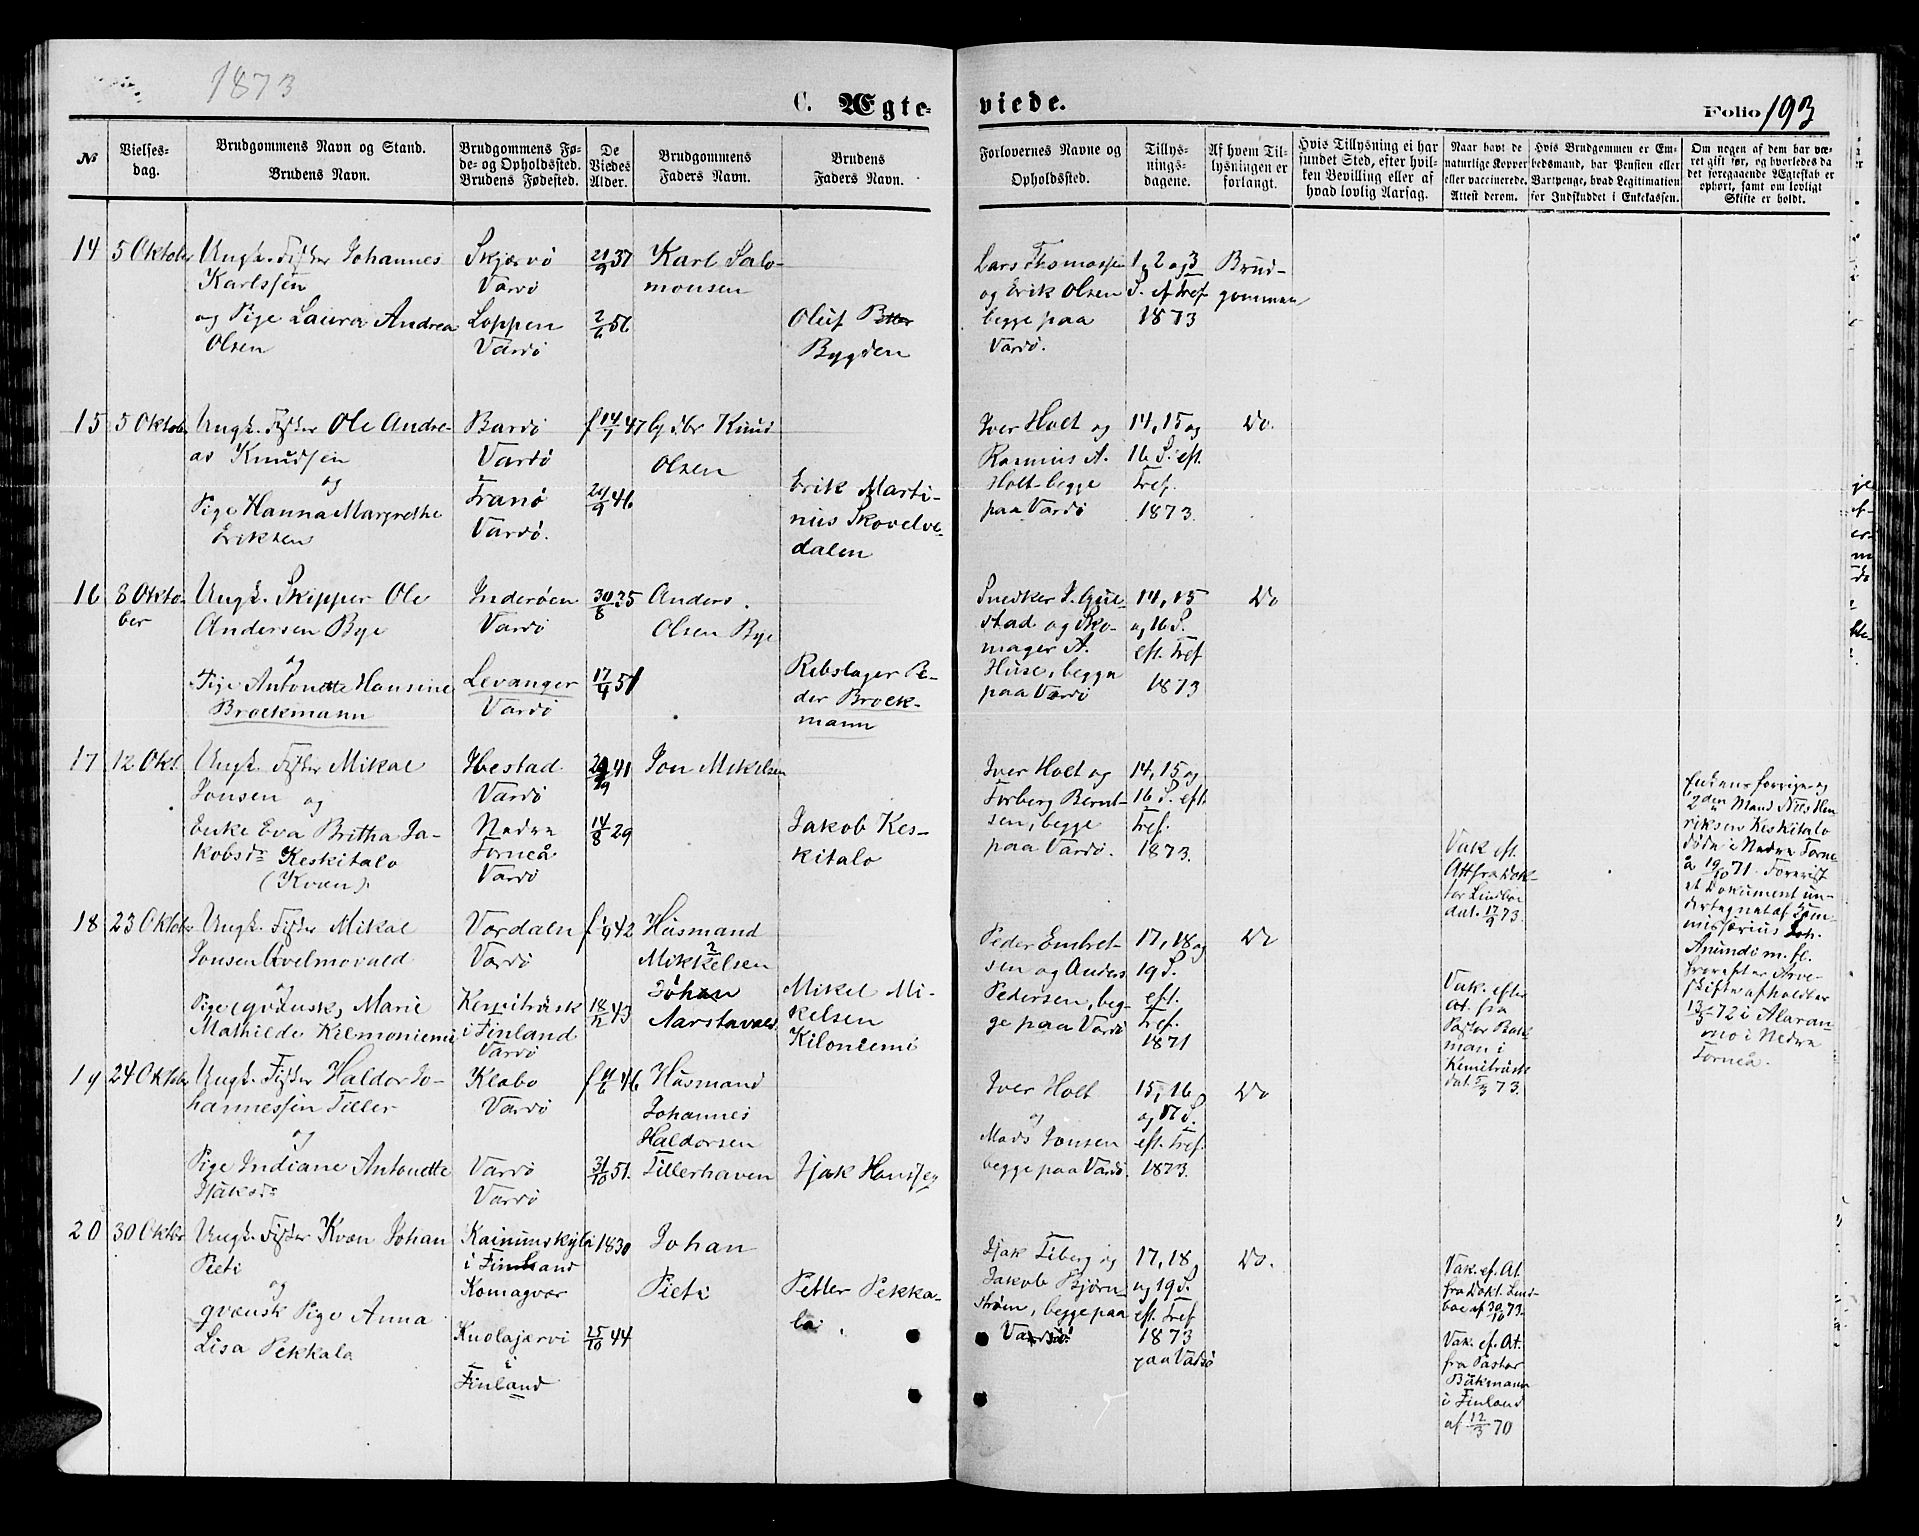 1873
C. Ægte-
viede.
Folio 193
№
Vielses-
dag.
Brudgommens Navn og Stand.
Brudens Navn.
Brudgommens Fø-
de- og Opholdssted.
Brudens Fødested.
De
Viedes
Alder.
Brudgommens
Faders Navn.
Brudens
Faders Navn.
Forlovernes Navne og
Opholdssted.
Tillys-
nings-
dagene.
Af hvem Til-
lysningen er
forlangt.
Hvis Tillysning ei har
fundet Sted, efter hvil-
ken Bevilling eller af
hvad lovlig Aarsag.
Naar havt de
naturlige Kopper
eller vaccinerede.
Attest derom.
Hvis Brudgommen er Em-
bedsmand, har Pension eller
Vartpenge, hvad Legitimation
for Indskuddet i Enkekassen.
Om nogen af dem har væ-
ret gift før, og hvorledes da
det foregaaende Ægteskab er
ophørt, samt om lovligt
Skifte er holdt.
14
5 Oktober
Ungk. Fisker Johannes
Karlssen
og Pige Laura Andrea
Olsen
Skjærvø
Vardö
Loppen
Vardö
21/9 37
2/6 56
Karl Salo-
monsen
Oluf Petter
Bygden
Lars Thomassen
og Erik Olsen
begge paa
Vardö.
1, 2 og 3
S. ef Tref
1873
Brud-
gommen
15
5 Oktob.
Ungk. Fisker Ole Andre-
as Knudsen
og
Pige Hanna Margrethe
Eriksen
Bardö
Vardö
Tranö
Vardö.
f 14/7 47
24/9 46
Gdbr Knud
Olsen
Erik Marti-
nus Skovelve-
dalen
Iver Holt og
Rasmus A.
Holt begge
paa Vardö
14, 15 og
16 S. eft.
Tref.
1873.
Do.
16
8 Okto-
ber
Ungk. Skipper Ole
Andersen Bye
og
Pige Antonette Hansine
Brockmann
Inderöen
Vardö
Levanger
Vardö
30/8 35
17/4 51
Anders
Olsen Bye
Rebslager Pe-
der Brock-
mann
Snedker P. Gul-
stad og Sko-
mager A.
Huse, begge
paa Vardö
14, 15
og 16 S.
eft. Tref
1873
Do
17
12 Okt.
Ungk. Fisker Mikal
Jonsen og
Enke Eva Britha Ja-
kobsdr Keskitalo
(Kvæn).
Ibestad
Vardö
Nedre
Torneå
Vardö
41
14/8 29
Jon Mikelsen
Jakob Kes-
kitalo
Iver Holt og
Torberg Bernt-
sen, begge
paa Vardö.
14, 15 og
16 S. eft
Tref.
1873.
Vak ef.
Att fra Dok-
tor Lindboe
dat. 17/9 73.
Enkens forrige og
2den Mand Nils Hen
riksen Keskitalo
döde i Nedre Torne
å 19/10 71. Forevist
et Dokument un-
dertegnet af Kom-
missærius Joh.
Arundi m. fl.
hvorefter Arve-
skifte afholdt er
13/3 72 i Alaran-
mo i Nedre
Torneå.
18
23 Oktob.
Ungk. Fisker Mikal
Jonsen Kvelmovald
og
Pige (qvænsk) Marie
Mathilde Kilmoniemi
Værdalen
Vardö
Kemiträsk
i Finland
Vardö
42
18/12 43
Husmand
Mikkelsen
Johan
Aarstavald
Mikel Mi-
kelsen
Kiloniemi
Peder Embret-
sen og Anders
Pedersen, beg-
ge paa Vardö
17, 18 og
19 S.
eft.
Tref.
1871
Do
Vak. efter
At. fra
Pastor Back
man i
Kemiträsk
dat. 5/3 73.
19
24 Oktob.
Ungk. Fisker Haldor Jo-
hannessen Tiller
og
Pige Indiane Antonette
Isaksdr
Klæbo
Vardö
Vardö
Vardö
46
31/10 51.
Husmand
Johannes
Haldorsen
Tillerhaven
Isak Hansen
Iver Holt
og
Mads Jonsen
begge paa Vardö.
15, 16
og 17 S.
eft. Tref.
1873.
Do
20
30 Oktbr
Ungk. Fisker Kvæn Johan
Pieti
og
qvænsk Pige Anna
Lisa Pekkala
Kainunskylä
i Finland
Komagvær
Kuolajærvi
i
Finland
1830
25/10 44
Johan
Pieti
Petter Pekka-
la
Isak Fiberg og
Jakob Björn-
ström, begge paa
Vadsö
17, 18
og 19 S.
eft Tref
1873
paa Vadsö
Do.
Vak. ef. At
fra Dokt. Lind-
boe af 30/10 73.
Vak. ef. At.
fra Pastor
Bäkmann
i Finland
af 12/3 70